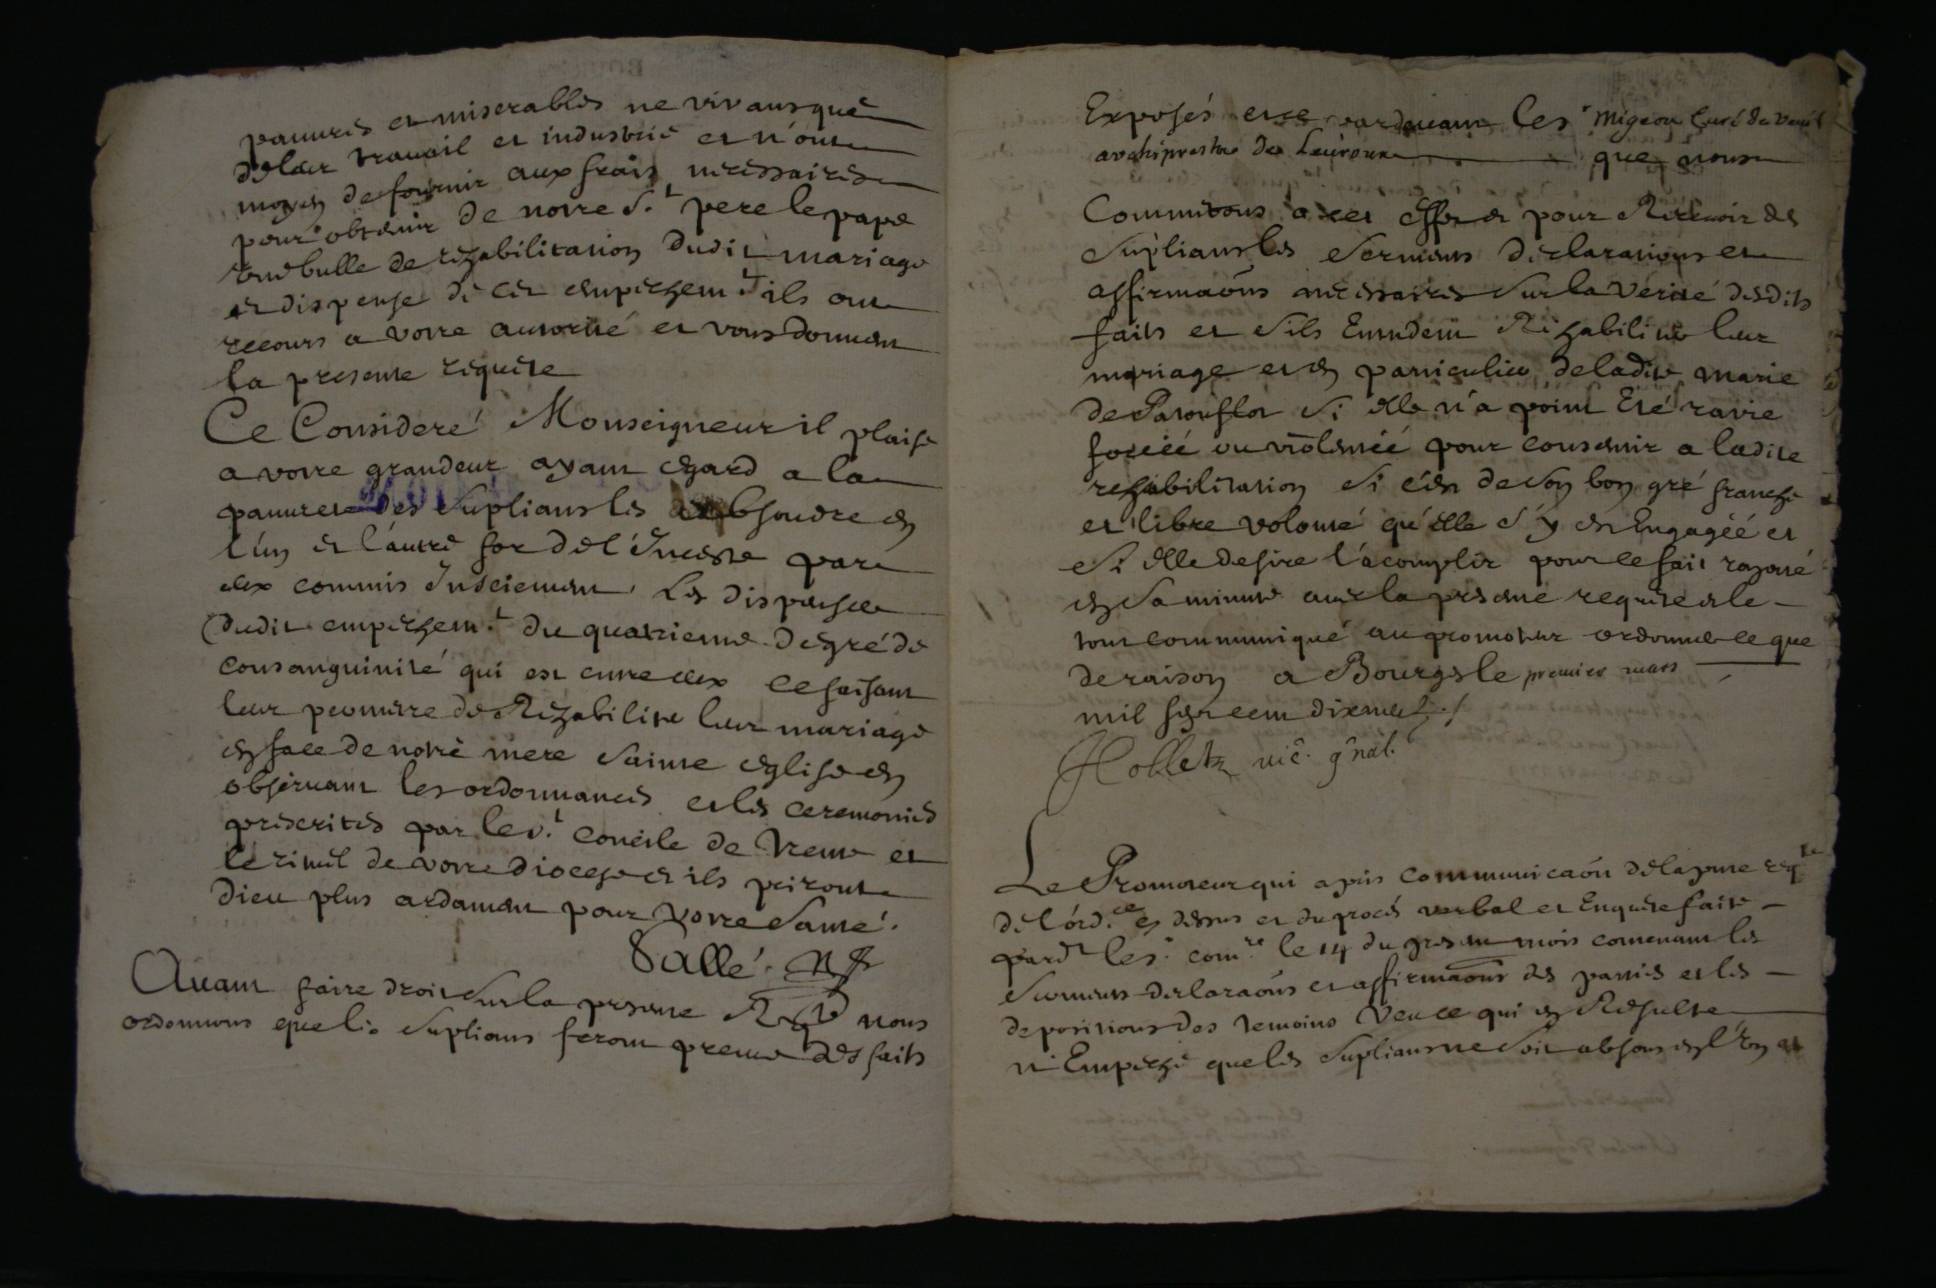 pauures et miserables ne vivans que
de leur travail et industrie et n'ont
moyen de fournir aux frais necessaires
pour obtenir de notre St pere le pape
une bulle de rehabilitation dudit mariage
et dispense de cet empechemt ils ont
recours a votre autorité et vous donnent
la presente requete
Ce Consideré Monseigneur il plaise
a votre grandeur ayant egard a la
pauureté des supliants les absoudre en
l'un et l'autre for de l'inceste par
eux commis insciemment les dispenser
dudit empechemt du quatrieme degré de
consanguinité qui est entre eux ce faisant
leur permettre de Rehabiliter leur mariage
en face de notre mere sainte eglise en
observant les ordonnances et les ceremonies
prescrites par le St concile de Trente et
le rituel de votre diocese et ils priront
Dieu plus ardament pour votre santé.
Sallé
Auant faire droit sur la presente Rqte nous
ordonnons que les supliants feront preuve des faits
Exposés et ce pardeuant le sr Migeon Curé de Veuil
archiprestre de Leuroux que nous
Commettons a cet effet et pour Recevoir des
supliants les serments declarations et
affirmaons necessaires sur la verité desdits
faits et s'ils entendent Rehabiliter leur
mariage et en particulier de ladite marie
de Patouflot si elle n'a point eté ravie
forcéé ou violentéé pour consentir a ladite
rehabilitation si c'est de son bon gré franche
et libre volonté qu'elle s'y est engagéé et
si elle desire l'acomplir pour le fait raporté
en sa minute avec la presente requete et le
tout communiqué au promoteur ordonner ce que
de raison a Bourges le premier mars
mil sept cent dixneuf
vic. gnal.
Le Promoteur qui a pris communicaon de la pnte reqte
de l'ord.ce cy dessus et du procés verbal et Enquete faite
pardt le sr comre le 14 du present mois contenant les
serments declaraons et affirmaons des parties et les
depositions des temoins Veu ce qui en Resulte
n'Empeche que les supliants ne soit absous en l'un et